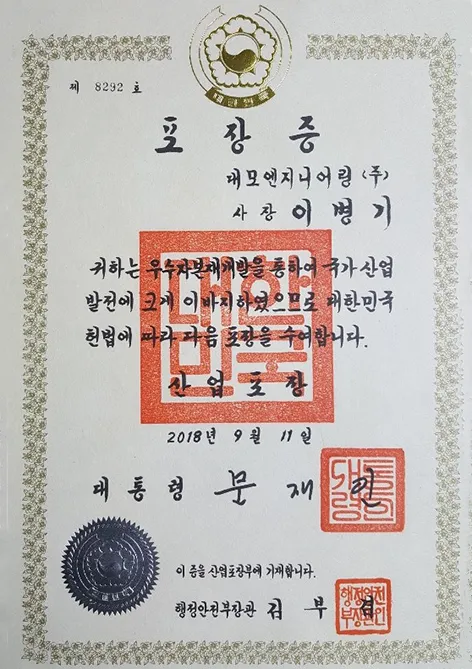 대한민국
제 8292 호
포장증
대모엔지니어링 (주)
사장 이병기
귀하는 우수자본재개발을 통하여 국가산업
발전에 크게 이바지하였으므로 대한민국
헌법에 따라 다음 포장을 수여합니다.
산업포장
2018년 9월 11일
대통령 문재인
이 증을 산업포장부에 기재합니다.
행정안전부장관 김부겸